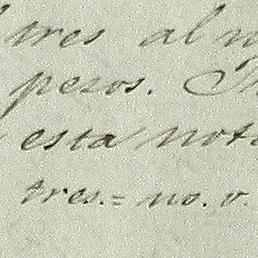 tres al
pesos.
esta nota
tres.= no. v.